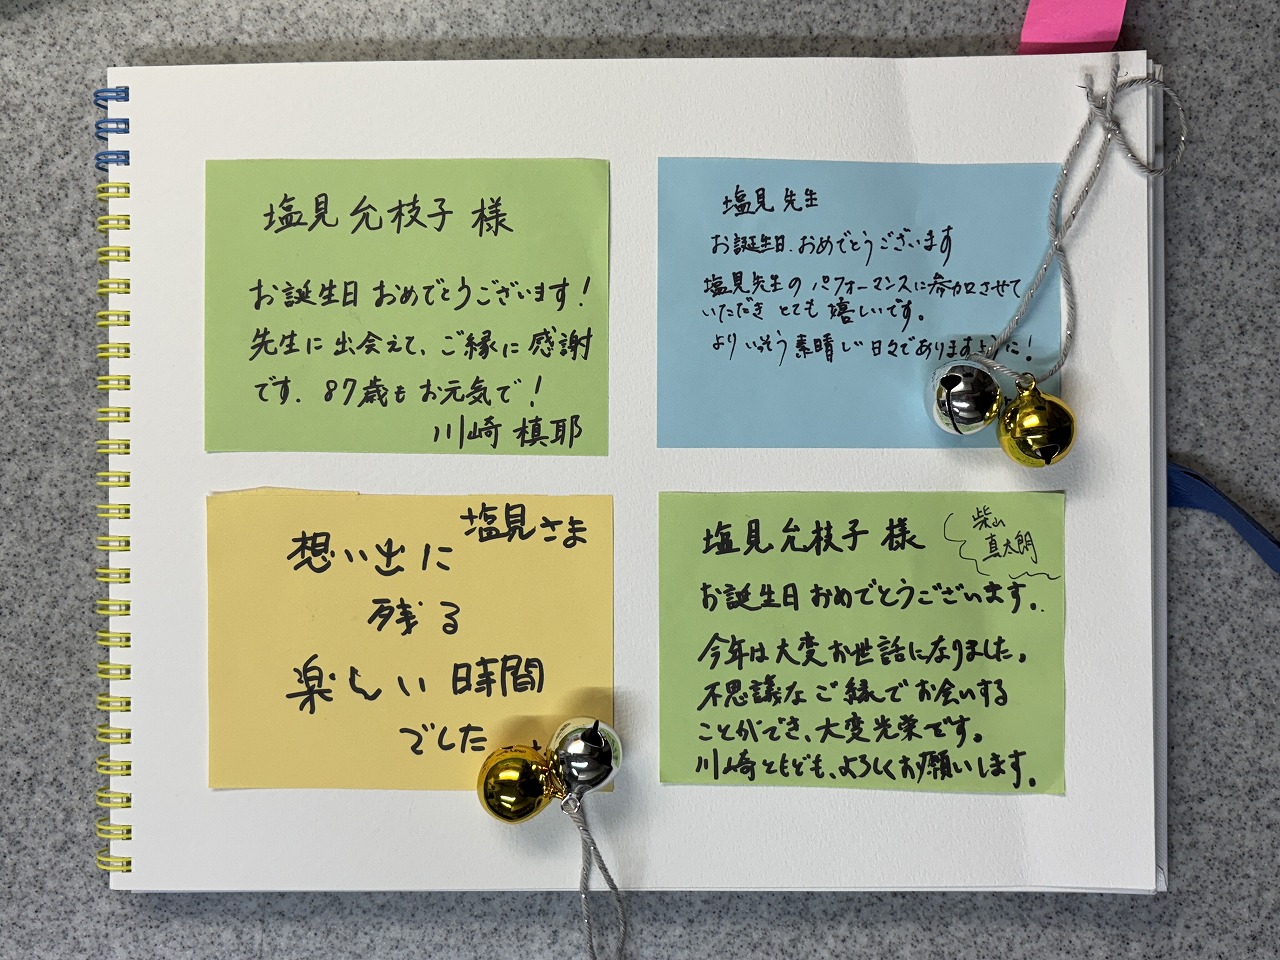 塩見允枝子様
お誕生日おめでとうございます!
先生に出会えて、ご縁に感謝
です。87歳もお元気で!
川崎槙耶
塩見先生
お誕生日、おめでとうございます
塩見先生のパフォーマンスに参加させて
いただきとても嬉しいです。
よりいっそう素晴しい日々でありますように!
塩見さま
想い出に
残る
楽しい時間
でした
塩見允枝子様
柴山
真太朗
お誕生日おめでとうございます。
今年は大変お世話になりました。
不思議なご縁でお会いする
ことができ、大変光栄です。
川崎ともども、よろしくお願いします。